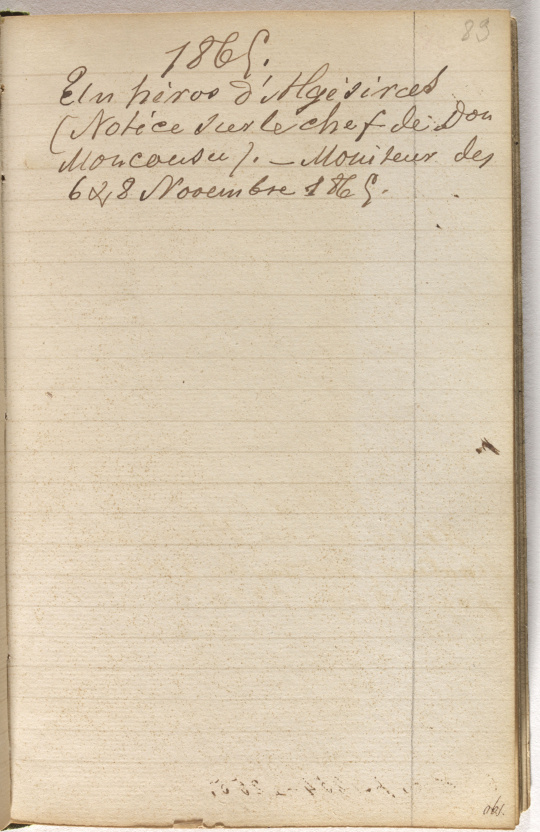 83
1865.
Un héros d'Algésiras
(Notice sur le chef de Don
Moncousu). — Moniteur des
6 & 8 Novembre 1865.